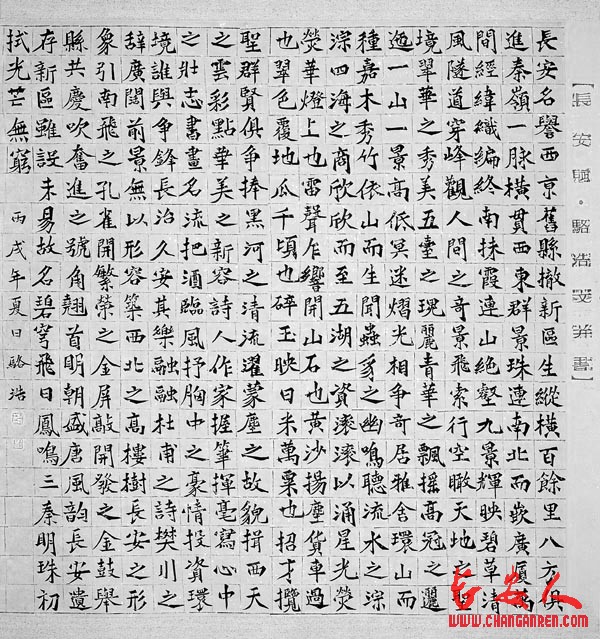 【長安賦·駱浩文并書】
長安名譽西京舊縣撤新區生縱橫百餘里八方俱
進秦嶺一脉橫貫西東群景珠連南北而嵌廣厦萬
間經緯織編終南抹霞連山絶壑九景輝映碧草清
風隧道穿峰觀人間之奇景飛索行空瞰天地之聖
境翠華之秀美五臺之瑰麗青華之飄摇高冠之邐
迤一山一景高低冥迷熠光相争奇居雅舍環山而
種嘉木秀竹依山而生聞蟲豸之幽鳴聽流水之淙
淙四海之商欣欣而至五湖之資滚滚以涌星光熒
熒華燈上也雷聲乍響開山石也黄沙揚塵貨車過
也翠色覆地瓜千頃也碎玉映日米萬粟也招才攬
聖群賢俱争捧黑河之清流濯蒙塵之故貌揖西天
之雲彩點華美之新容詩人作家握筆揮毫寫心中
之壯志書畫名流把酒臨風抒胸中之豪情投資環
境誰與争鋒長治久安其樂融融杜甫之詩樊川之
辭廣闊前景無以形容築西北之高樓樹長安之形
象引南飛之孔雀開繁榮之金屏敲開發之金鼓舉
縣共慶吹奮進之號角翹首明朝盛唐風韵長安遺
存新區雖設未易故名碧穹飛日鳳鳴三秦明珠初
拭光芒無窮 丙戌年夏日駱浩
长安人
WWW.CHANGANREN.COM